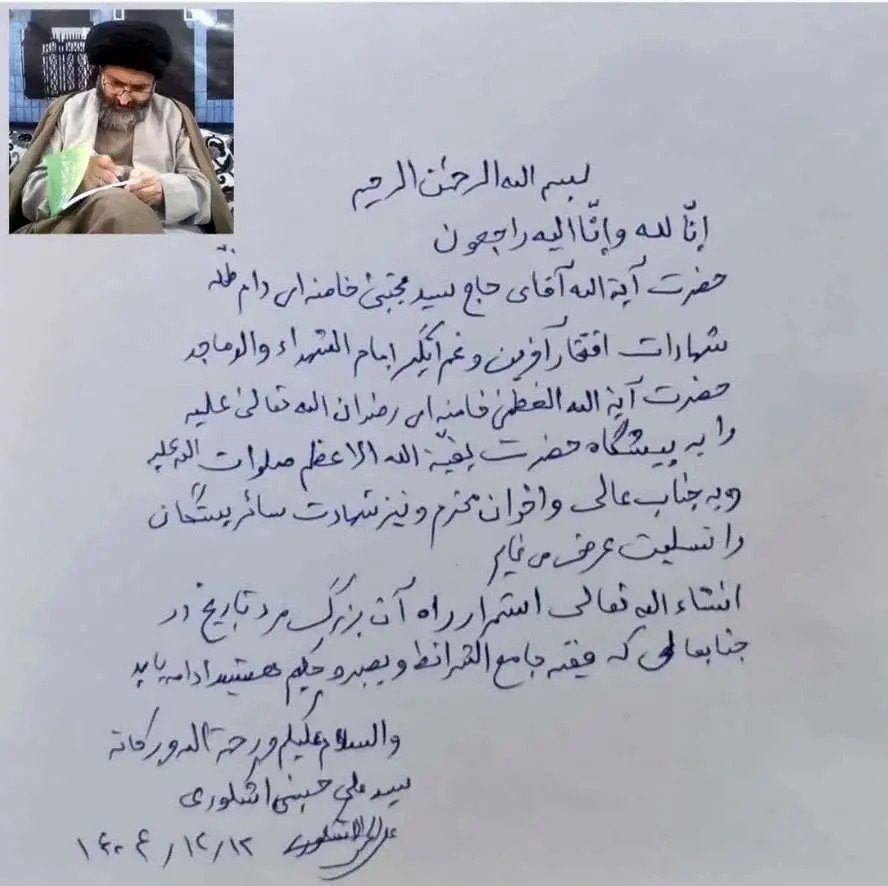 بسم الله الرحمٰن الرحیم
إنّا لله وإنّا إلیه راجعون
حضرت آیة الله آقای حاج سید مجتبیٰ خامنه ای دام ظلّه
شهادت افتخارآفرین و غم انگیز امام الشهداء والد ماجد
حضرت آیة الله العظمیٰ خامنه ای رضوان الله تعالیٰ علیه
را به پیشگاه حضرت بقیّة الله الاعظم صلوات الله علیه
و به جناب عالی و اخوان محترم و نیز شهادت سائر بستگان
را تسلیت عرض می نمایم
انشاء الله تعالی استمرار راه آن بزرگ مرد تاریخ در
جنابعالی که فقیه جامع الشرائط و بصیر و حکیم هستید ادامه یابد
والسلام علیکم ورحمة الله وبرکاته
سید علی حسینی اشکوری
۱۴۰۴/۱۲/۱۲